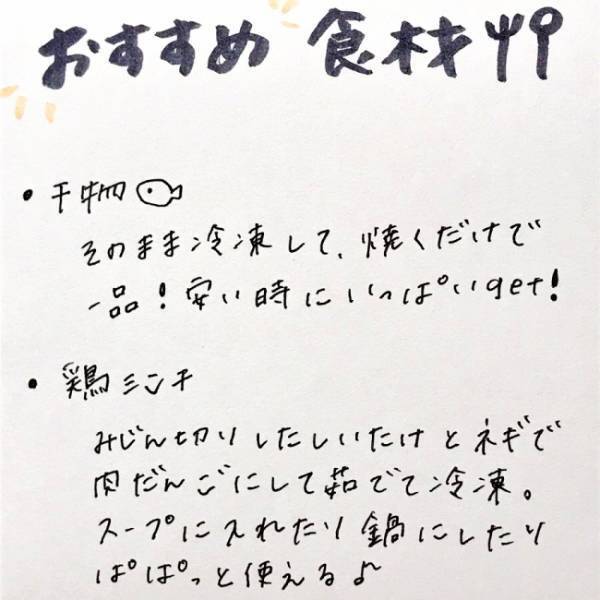 おすすめ 食材
・干物
そのまま冷凍して、焼くだけで
一品！安い時にいっぱいget！
・鶏ミンチ
みじん切りしたしいたけとネギで
肉だんごにして茹でて冷凍。
スープに入れたり鍋にしたり
ぱぱっと使える♪